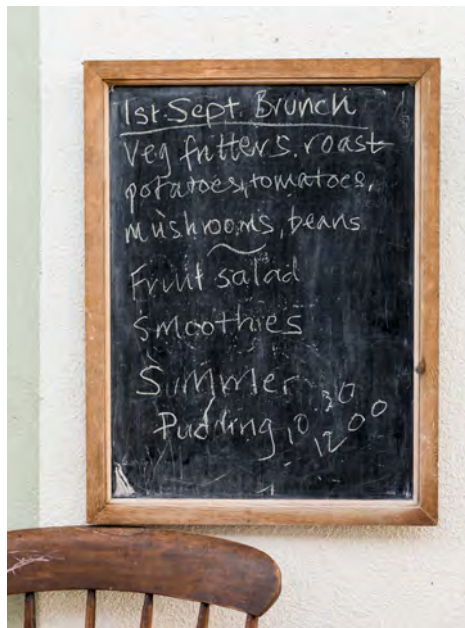 1st Sept. Brunch
Veg fritters, roast
potatoes, tomatoes,
mushrooms, beans
Fruit salad
Smoothies
Summer
Pudding 10.30
- 12.00